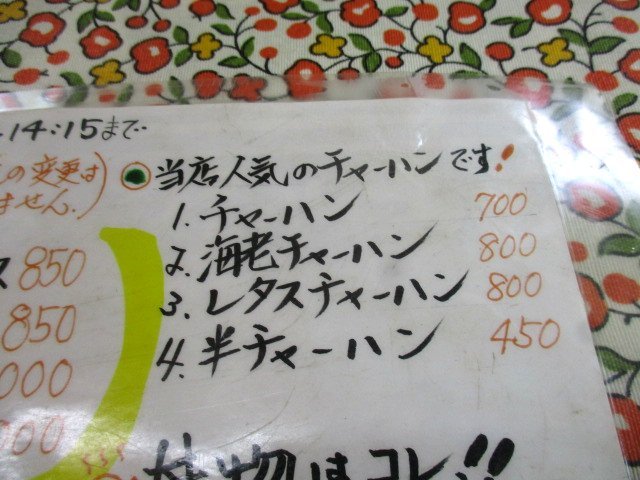 14:15まで
の変更は
ません.)
850
850
000
当店人気のチャーハンです!
1. チャーハン 700
2. 海老チャーハン 800
3. レタスチャーハン 800
4. 半チャーハン 450
物はコレ!!